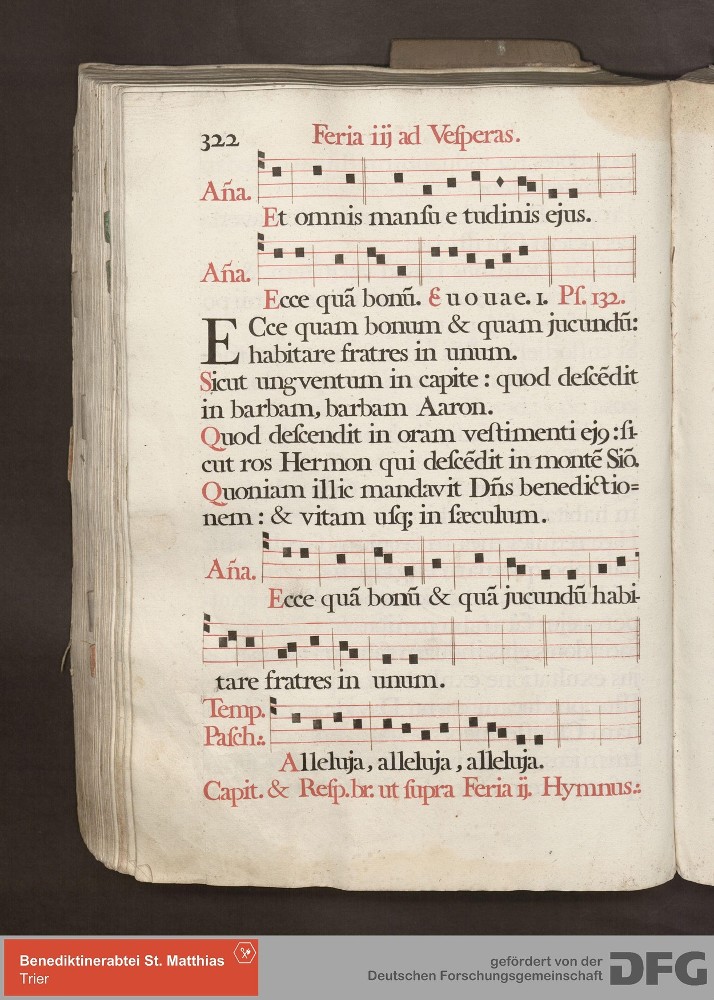 322 Feria iij ad Veſperas.
Aña.
Et omnis manſu e tudinis ejus.
Aña.
Ecce quã bonũ. E u o u a e. 1. Pſ. 132.
ECce quam bonum & quam jucundũ:
habitare fratres in unum.
Sicut ungventum in capite : quod deſcẽdit
in barbam, barbam Aaron.
Quod deſcendit in oram veſtimenti ejꝯ : ſi-
cut ros Hermon qui deſcẽdit in montẽ Siõ.
Quoniam illic mandavit Dñs benedictio=
nem : & vitam uſq; in ſæculum.
Aña.
Ecce quã bonũ & quã jucundũ habi-
tare fratres in unum.
Temp.
Paſch:.
Alleluja, alleluja, alleluja.
Capit. & Reſp. br. ut ſupra Feria ij. Hymnus:.
Benediktinerabtei St. Matthias
Trier
gefördert von der
Deutschen Forschungsgemeinschaft DFG